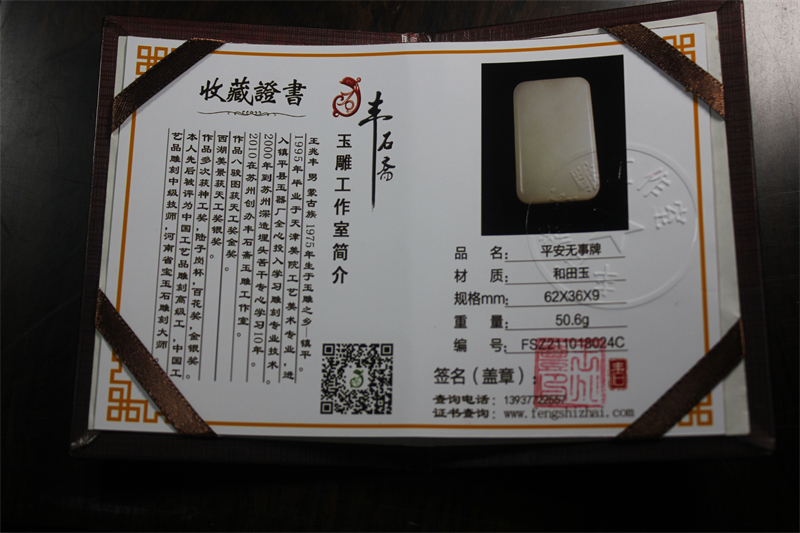 收藏證書
丰石斋
玉雕工作室简介
王兆丰 男 蒙古族 1975年生于玉雕之乡—镇平。
1995年毕业于天津美院工艺美术专业，进
入镇平县玉器厂全心投入学习雕刻专业技术。
2000年到苏州深造埋头苦干专心学习10年。
2010在苏州创办丰石斋玉雕工作室。
作品八骏图获天工奖金奖。
西湖美景获天工奖银奖。
作品多次获神工奖，陆子岗杯，百花奖，金银奖。
本人先后被评为中国工艺品雕刻高级工，中国工
艺品雕刻中级技师，河南省宝玉石雕刻大师
品 名： 平安无事牌
材 质： 和田玉
规格mm： 62X36X9
重 量： 50.6g
编 号： FSZ211018024C
签名（盖章）：
查询电话：13937722557
证书查询：www.fengshizhai.com